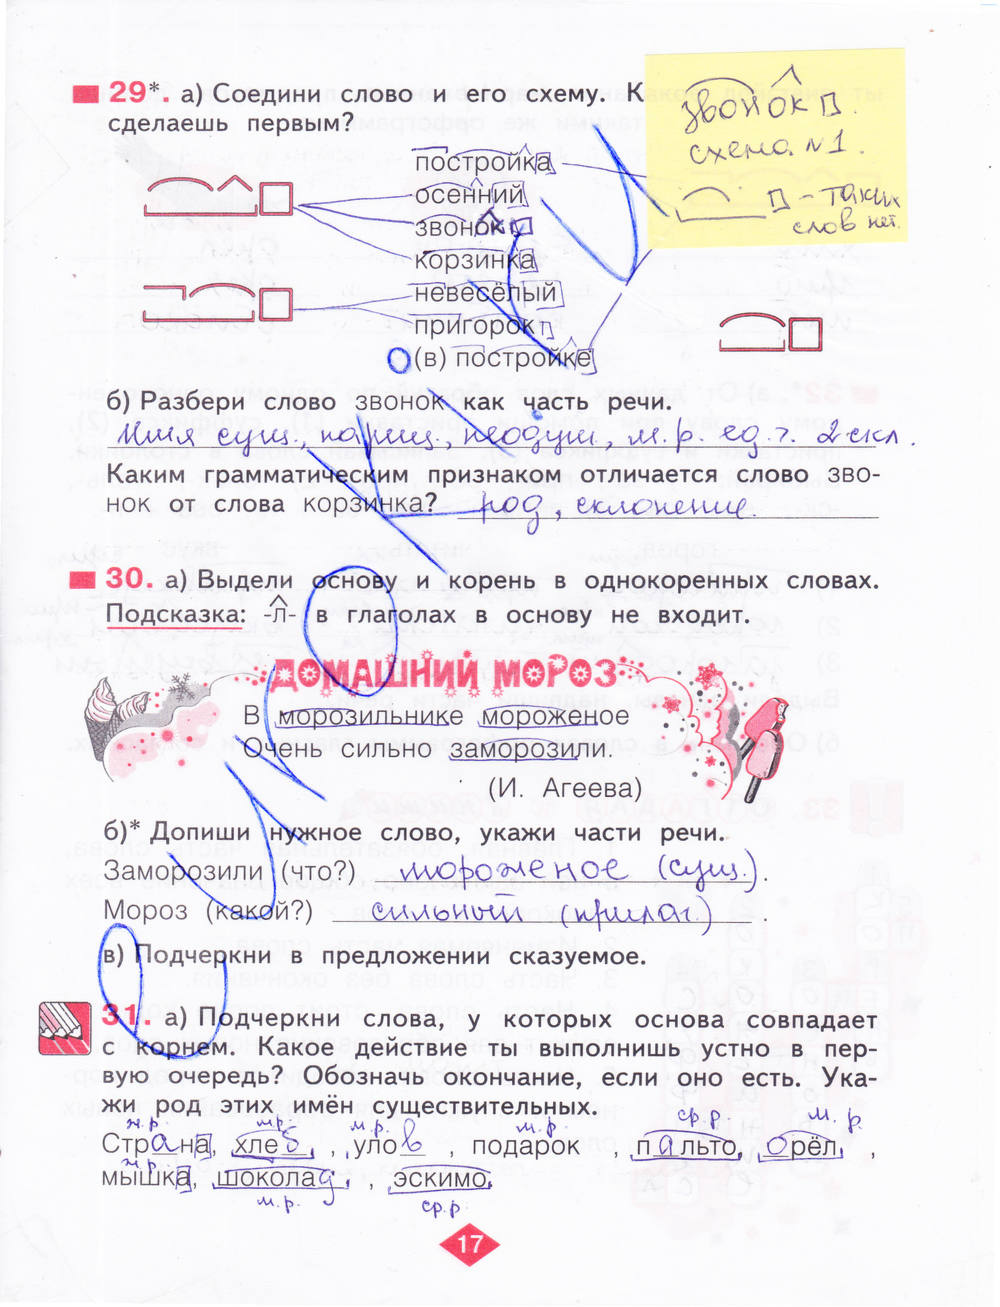 29*. а) Соедини слово и его схему. К
сделаешь первым?
звонок
схема №1.
- таких
слов нет.
постройка
осенний
звонок
корзинка
невесёлый
пригорок
(в) постройке
б) Разбери слово ЗВОНОК как часть речи.
Имя сущ., нариц., неодуш., м.р. ед.ч. 2 скл.
Каким грамматическим признаком отличается слово ЗВО-
НОК от слова КОРЗИНКА? род, склонение.
30. а) Выдели основу и корень в однокоренных словах.
Подсказка: -Л- в глаголах в основу не входит.
ДОМАШНИЙ МОРОЗ
В морозильнике мороженое
Очень сильно заморозили.
(И. Агеева)
б)* Допиши нужное слово, укажи части речи.
Заморозили (что?) мороженое (сущ.).
Мороз (какой?) сильный (прилаг.).
в) Подчеркни в предложении сказуемое.
31. а) Подчеркни слова, у которых основа совпадает
с корнем. Какое действие ты выполнишь устно в пер-
вую очередь? Обозначь окончание, если оно есть. Ука-
жи род этих имён существительных.
ж.р. м.р. м.р. м.р. ср.р. м.р.
Страна, хлеб, улов, подарок, пальто, орёл,
ж.р.
мышка, шоколад, эскимо.
м.р. ср.р.
17